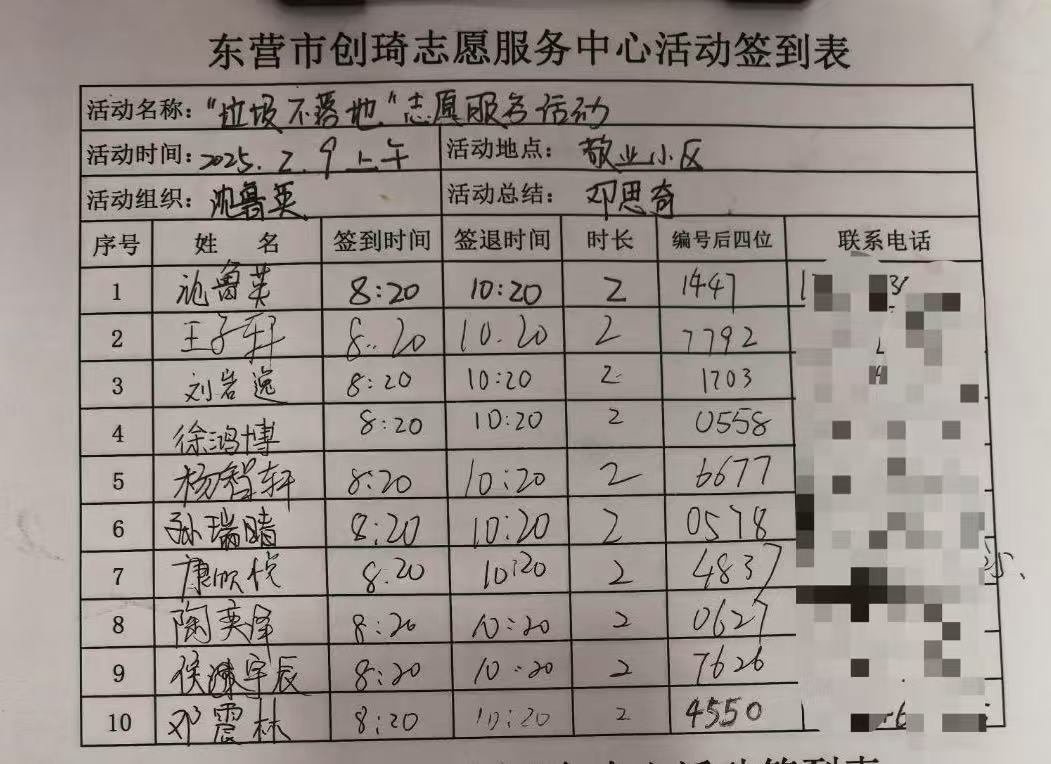 东营市创琦志愿服务中心活动签到表
活动名称：“垃圾不落地”志愿服务活动
活动时间：2025.2.9上午 活动地点：敬业小区
活动组织：沈鲁英 活动总结：邓思奇
序号 姓 名 签到时间 签退时间 时长 编号后四位 联系电话
1 沈鲁英 8:20 10:20 2 1447
2 王子轩 8:20 10.20 2 7792
3 刘岩逸 8:20 10:20 2 1703
4 徐鸿博 8:20 10:20 2 0558
5 杨智轩 8:20 10:20 2 6677
6 孙瑞晴 8:20 10:20 2 0578
7 康欣悦 8.20 10:20 2 4837
8 陶奕泽 8:20 10:20 2 0627
9 侯 宇辰 8:20 10:20 2 7626
10 邓震林 8:20 10:20 2 4550